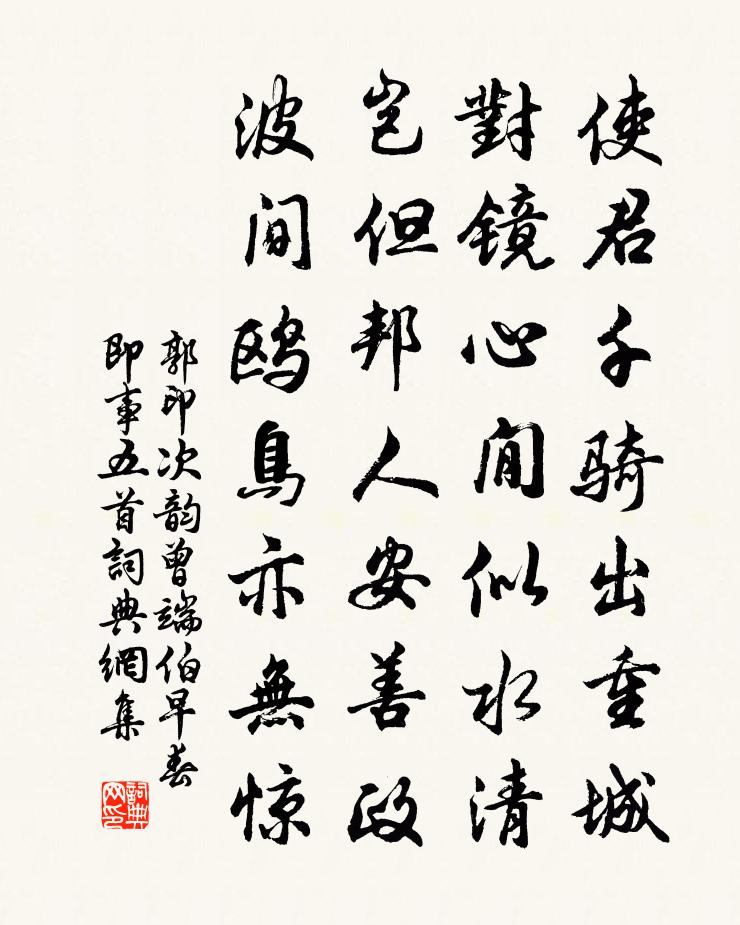 使君千骑出重城
對镜心间似水清
岂但邦人安善政
波间鸥鳥亦無惊
郭印次韵曾端伯早春
即事五首詞典網集
詞典
网印